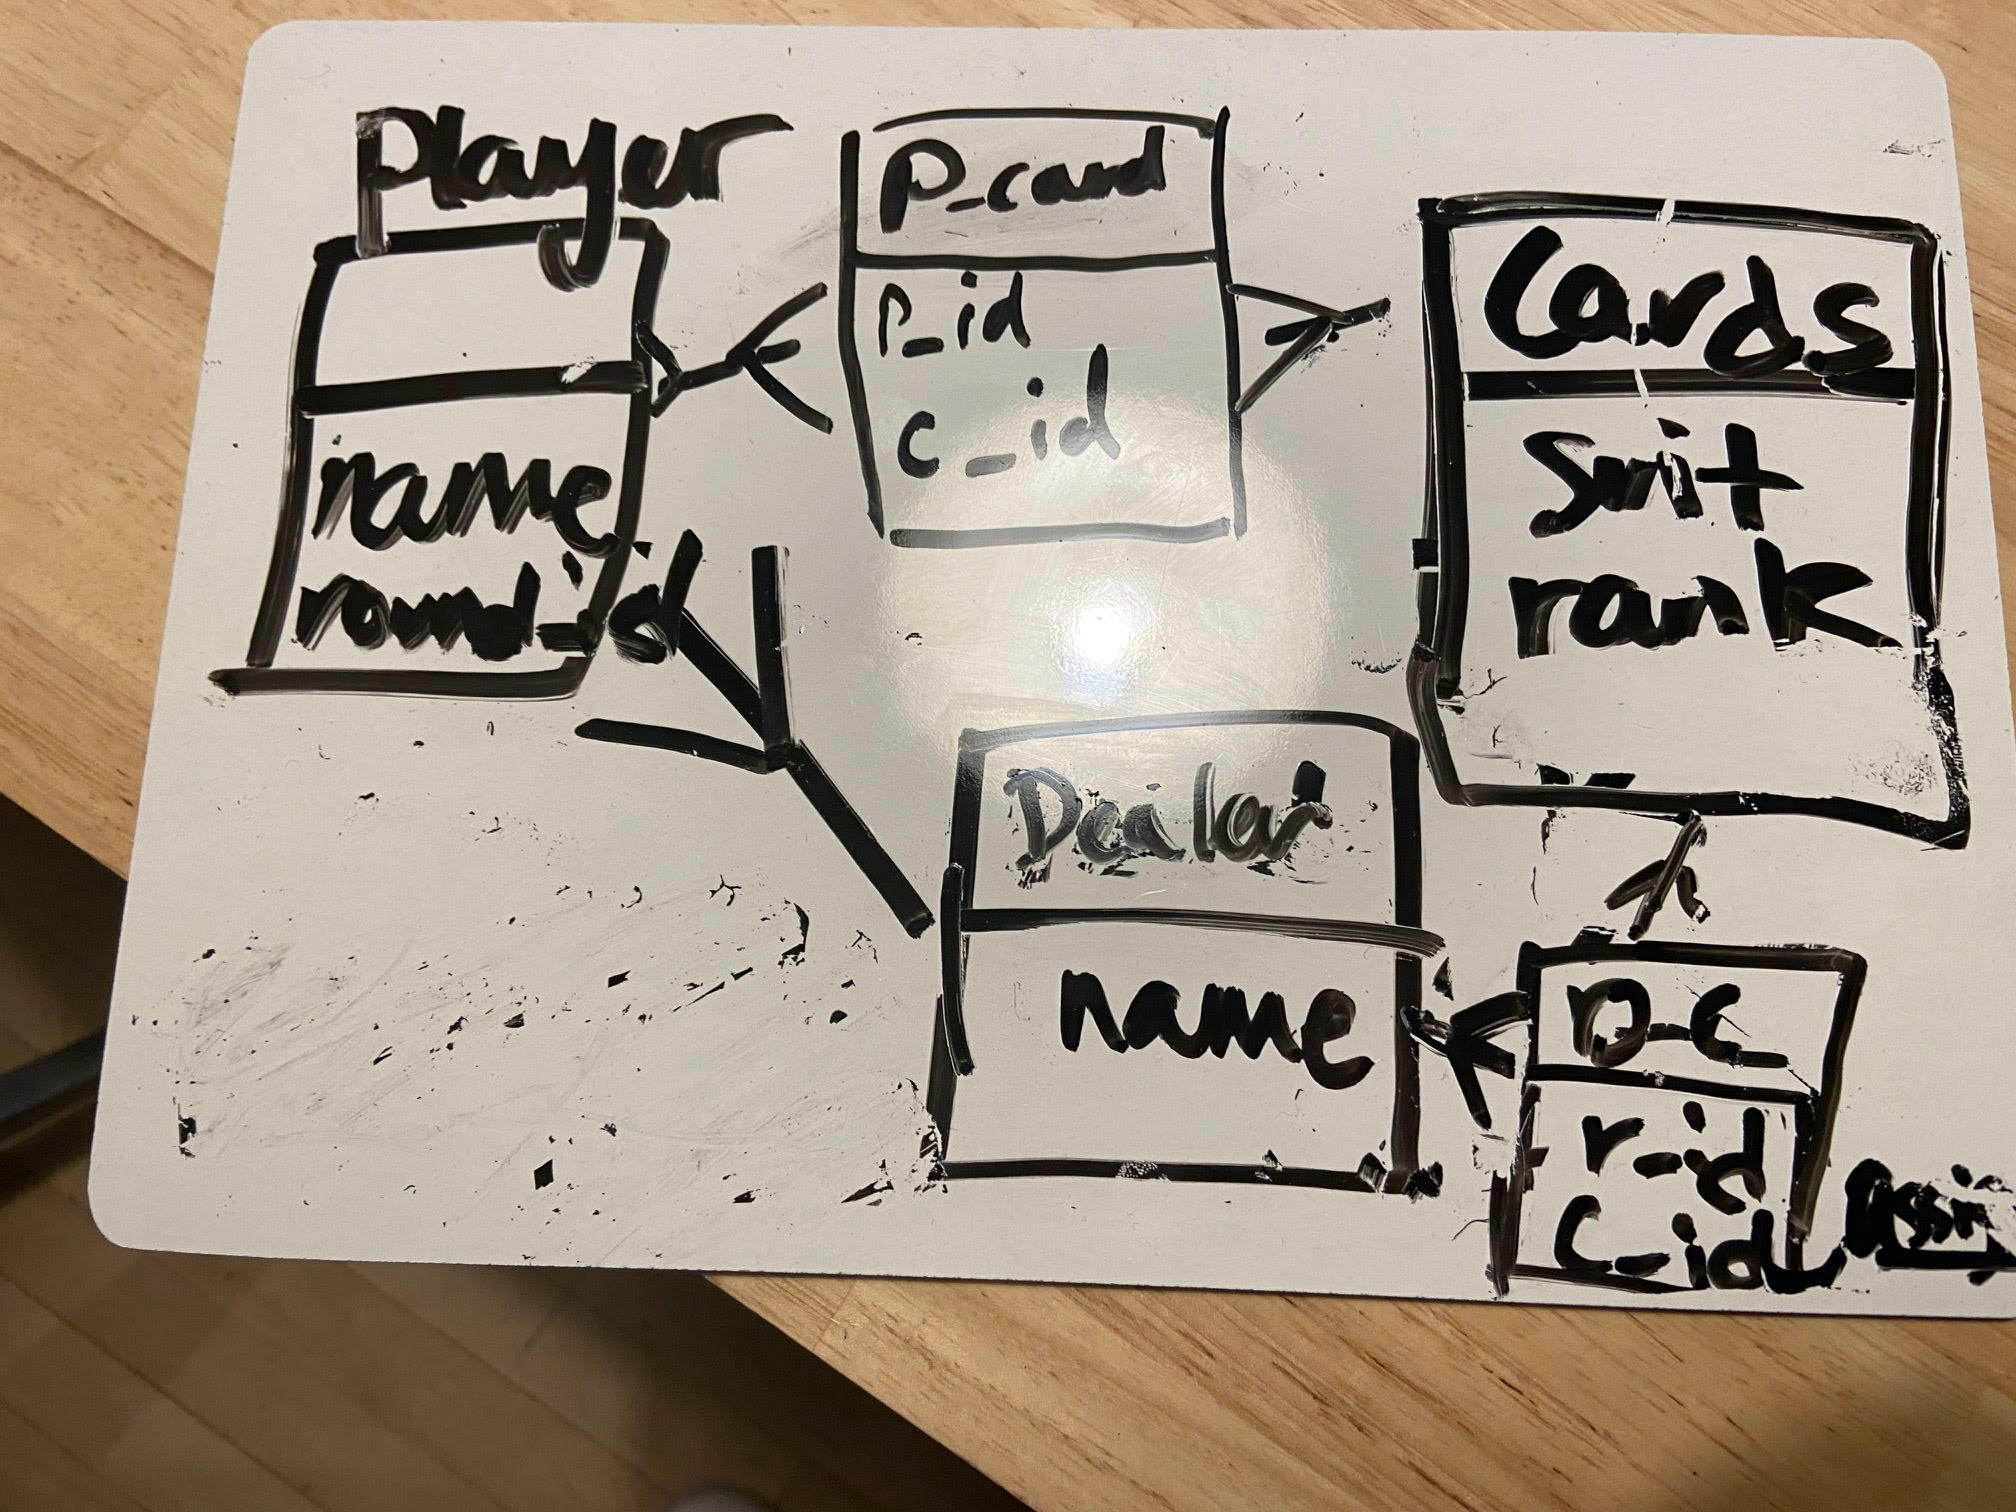 Player
name
round_id
P_card
P_id
C_id
Cards
Suit
rank
Dealer
name
r_id
C_id